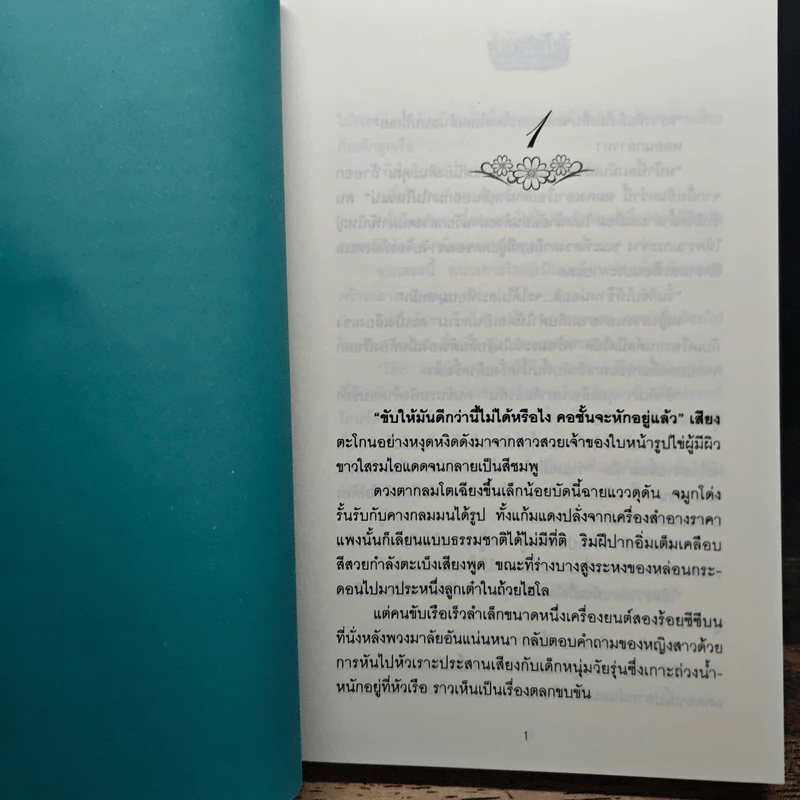 1
“ขับให้มันดีกว่านี้ไม่ได้หรือไง คอชั้นจะหักอยู่แล้ว” เสียง
ตะโกนอย่างหงุดหงิดดังมาจากสาวสวยเจ้าของใบหน้ารูปไข่ผู้มีผิว
ขาวใสรมไอแดดจนกลายเป็นสีชมพู
ดวงตากลมโตเฉียงขึ้นเล็กน้อยบัดนี้ฉายแววดุดัน จมูกโด่ง
รั้นรับกับคางกลมมนได้รูป ทั้งแก้มแดงปลั่งจากเครื่องสำอางราคา
แพงนั้นก็เลียนแบบธรรมชาติได้ไม่มีที่ติ ริมฝีปากอิ่มเต็มเคลือบ
สีสวยกำลังตะเบ็งเสียงพูด ขณะที่ร่างบางสูงระหงของหล่อนกระ-
ดอนไปมาประหนึ่งลูกเต๋าในถ้วยไฮโล
แต่คนขับเรือเร็วลำเล็กขนาดหนึ่งเครื่องยนต์สองร้อยซีซีบน
ที่นั่งหลังพวงมาลัยอันแน่นหนา กลับตอบคำถามของหญิงสาวด้วย
การหันไปหัวเราะประสานเสียงกับเด็กหนุ่มวัยรุ่นซึ่งเกาะถ่วงน้ำ-
หนักอยู่ที่หัวเรือ ราวเห็นเป็นเรื่องตลกขบขัน
1